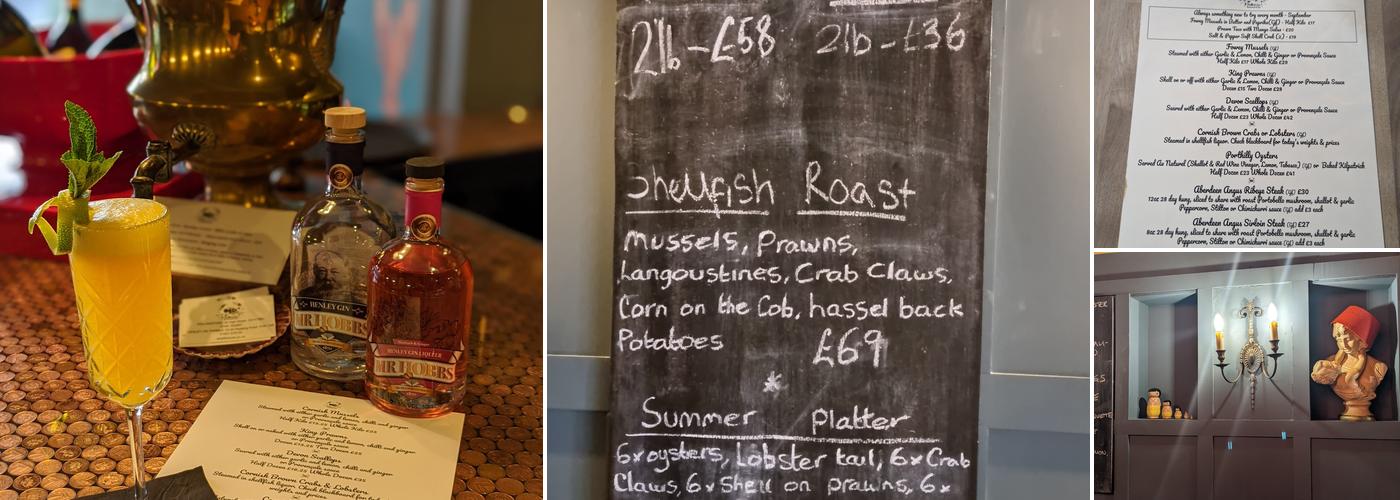 HENLEY GIN
MR HOBBS
HENLEY GIN LIQUEUR
MR HOBBS
Cornish Mussels
Steamed with either garlic and lemon, chilli and ginger
or Provençale sauce
King Prawns
Shell on or naked with either garlic and lemon, chilli and ginger,
or Provençale sauce
Devon Scallops
Seared with either garlic and lemon, chilli and ginger
or Provençale sauce
Cornish Brown Crabs & Lobsters
2lb-£58 2lb-£36
Shellfish Roast
Mussels, Prawns,
Langoustines, Crab Claws,
Corn on the Cob, hassel back
Potatoes £69
*
Summer Platter
6x oysters, Lobster tail, 6x Crab
Claws, 6x Shell on prawns, 6x
Always something new to try every month - September
Fowey Mussels in Butter and Paprika (gf) - Half Kilo £17
Prawn Taco with Mango Salsa - £20
Salt & Pepper Soft Shell Crab (2) - £19
Fowey Mussels (gf)
Steamed with either Garlic & Lemon, Chilli & Ginger or Provençale Sauce
Half Kilo £17 Whole Kilo £29
King Prawns (gf)
Shell on or off with either Garlic & Lemon, Chilli & Ginger or Provençale Sauce
Dozen £15 Two Dozen £28
Devon Scallops (gf)
Seared with either Garlic & Lemon, Chilli & Ginger or Provençale Sauce
Half Dozen £23 Whole Dozen £42
Cornish Brown Crabs or Lobsters (gf)
Steamed in shellfish liquor. Check blackboard for today's weights & prices
Porthilly Oysters
Served As Natural (Shallot & Red Wine Vinegar, Lemon, Tabasco) (gf) or Baked Kilpatrick
Half Dozen £23 Whole Dozen £41
Aberdeen Angus Ribeye Steak (gf) £30
12oz 28 day hung, sliced to share with roast Portobello mushroom, shallot & garlic
Peppercorn, Stilton or Chimichurri sauce (gf) add £3 each
Aberdeen Angus Sirloin Steak (gf) £27
8oz 28 day hung, sliced to share with roast Portobello mushroom, shallot & garlic
Peppercorn, Stilton or Chimichurri sauce (gf) add £3 each